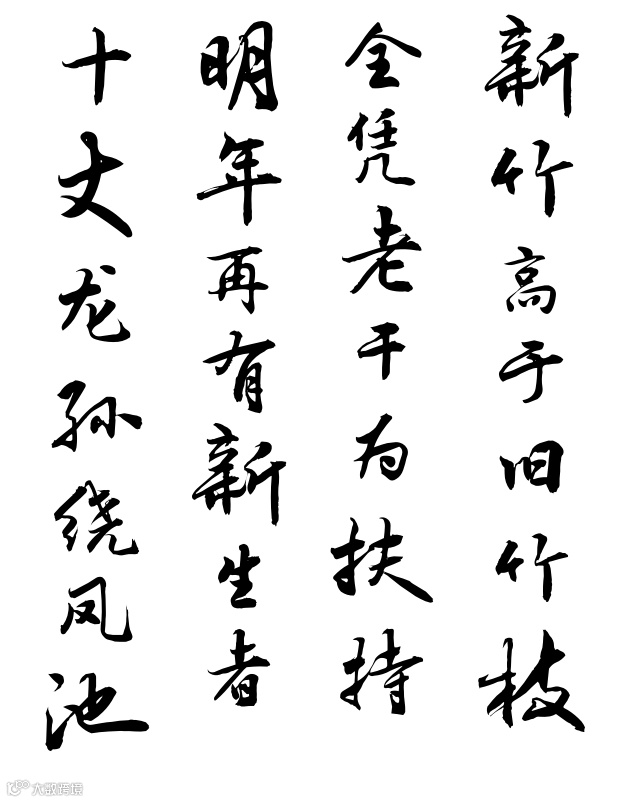 新竹高于旧竹枝
全凭老干为扶持
明年再有新生者
十丈龙孙绕凤池
大数跨境